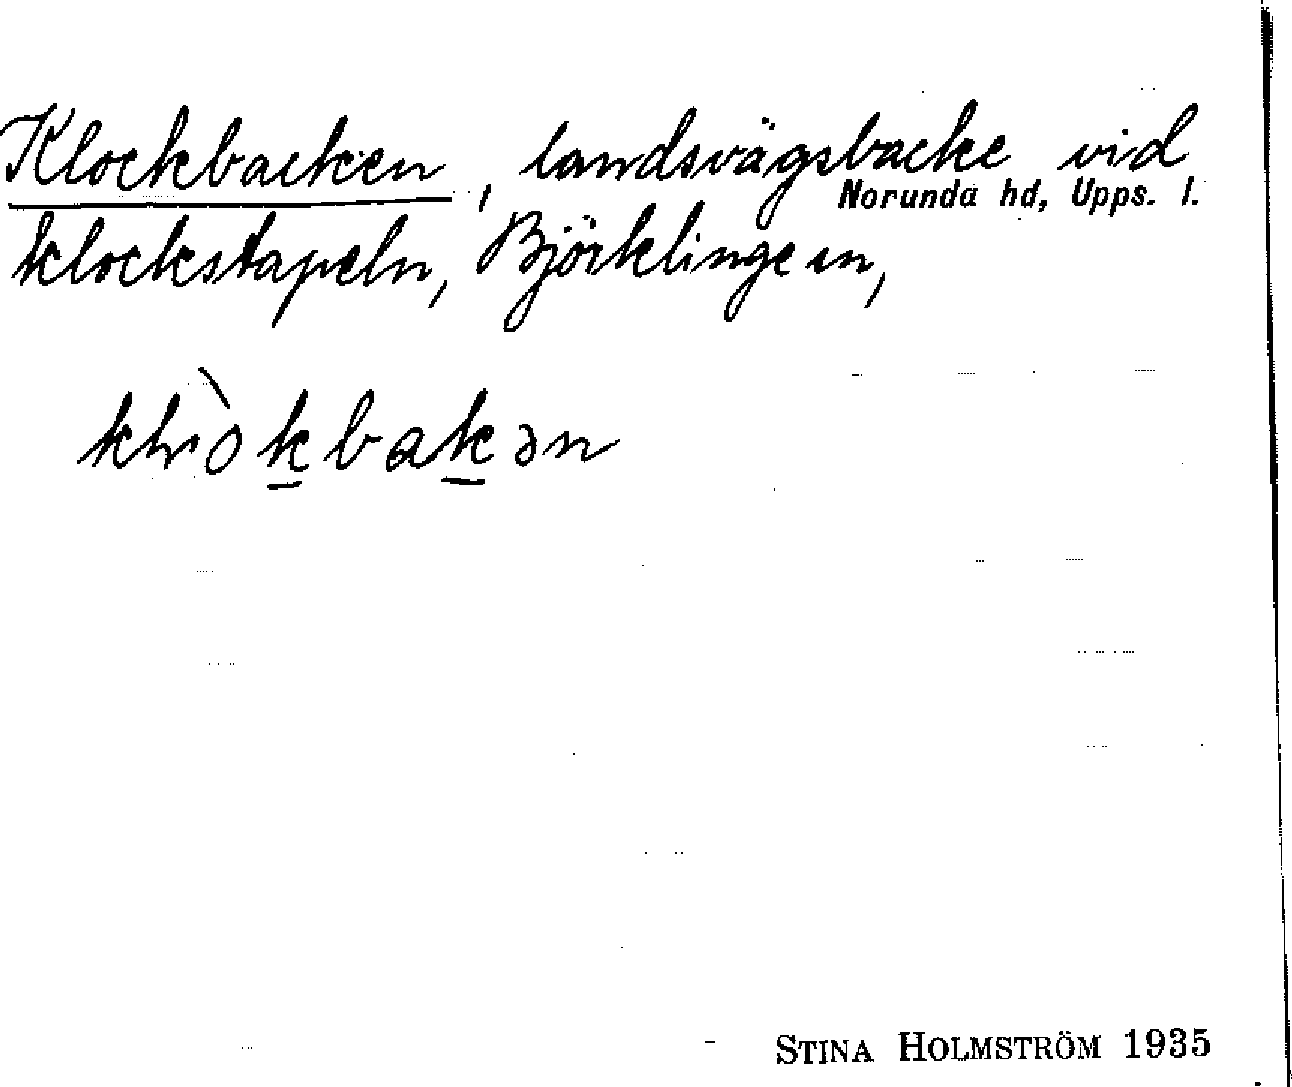 Klockbacken, landsvägsbacke vid
Norunda hd, Upps. l.
klockstapeln, Björklinge sn,
STINA HOLMSTRÖM 1935